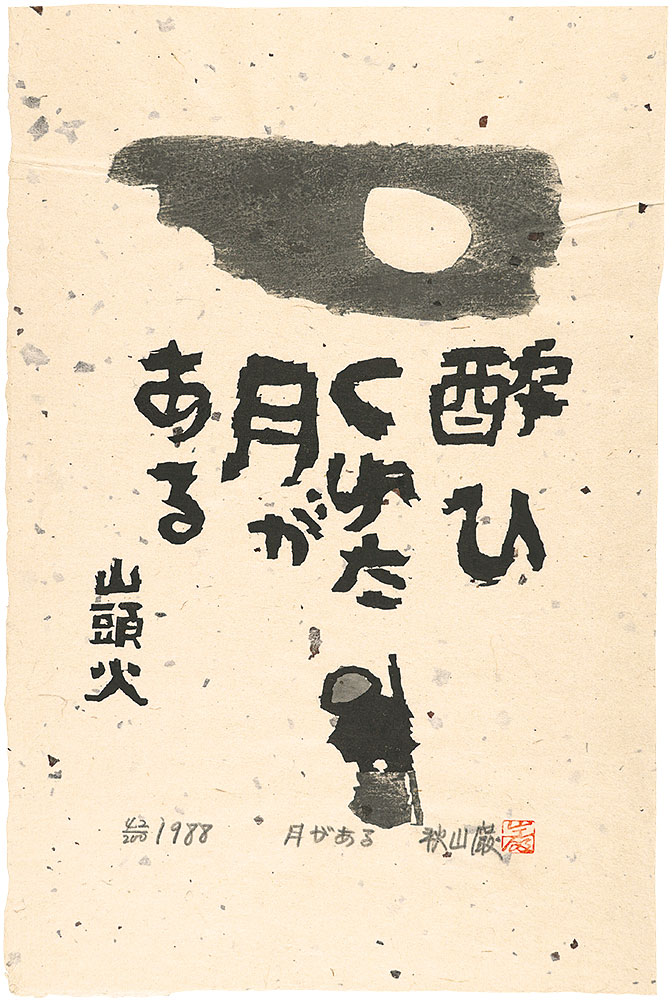 酔ひ
くた
月が
ある
山頭火
42/200 1988 月がある 秋山巌